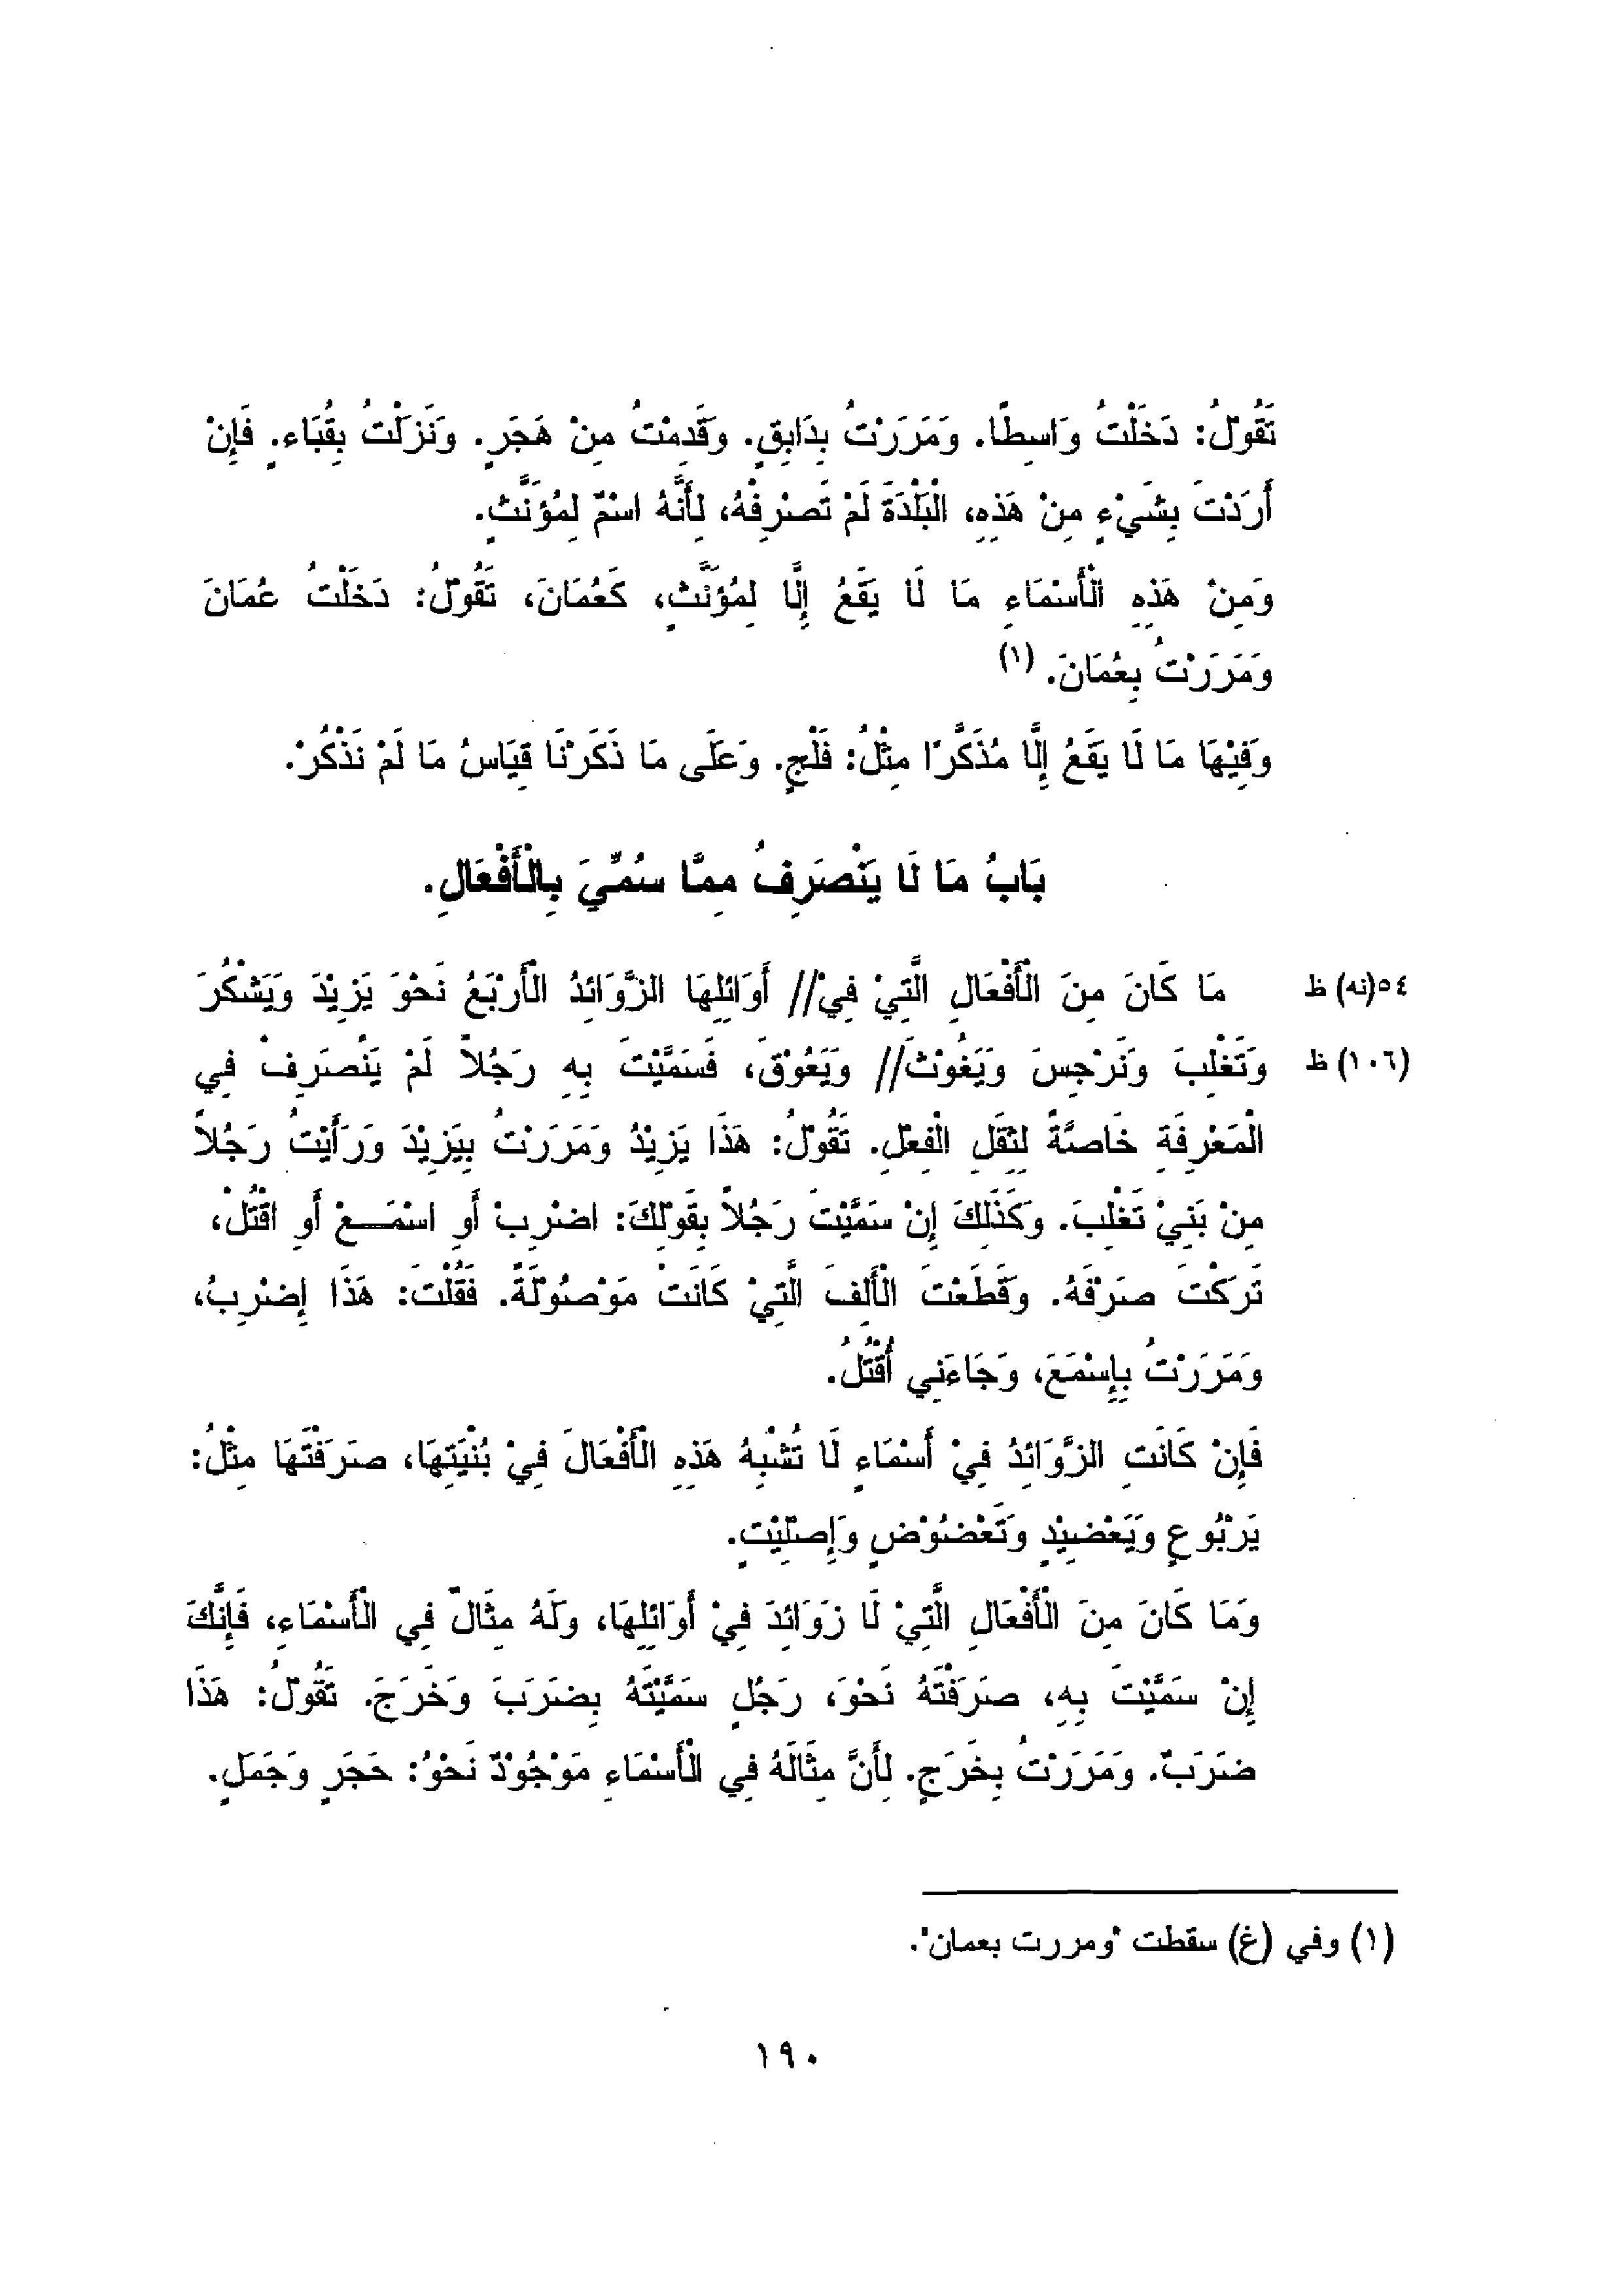 تَقُوْلُ: دَخَلْتُ وَاسِطًا. وَمَرَرْتُ بِدَابِقٍ. وَقَدِمْتُ مِنْ هَجَرٍ. وَنَزَلْتُ بِقُبَاءٍ. فَإِنْ
أَرَدْتَ بِشَيْءٍ مِنْ هَذِهِ، الْبَلْدَةَ لَمْ تَصْرِفْهُ، لِأَنَّهُ اسْمٌ لِمُؤَنَّثٍ.
وَمِنْ هَذِهِ الْأَسْمَاءِ مَا لَا يَقَعُ إِلَّا لِمُؤَنَّثٍ، كَعُمَانَ، تَقُوْلُ: دَخَلْتُ عُمَانَ
وَمَرَرْتُ بِعُمَانَ. (١)
وَفِيْهَا مَا لَا يَقَعُ إِلَّا مُذَكَّرًا مِثْلُ: فَلْجٍ. وَعَلَى مَا ذَكَرْنَا قِيَاسُ مَا لَمْ نَذْكُرْ.
بَابُ مَا لَا يَنْصَرِفُ مِمَّا سُمِّيَ بِالْأَفْعَالِ.
٥٤(نه) ظ مَا كَانَ مِنَ الْأَفْعَالِ الَّتِيْ فِيْ// أَوَائِلِهَا الزَّوَائِدُ الْأَرْبَعُ نَحْوَ يَزِيْدَ وَيَشْكُرَ
(١٠٦) ظ وَتَغْلِبَ وَنَرْجِسَ وَيَغُوْثَ// وَيَعُوْقَ، فَسَمَّيْتَ بِهِ رَجُلاً لَمْ يَنْصَرِفْ فِي
الْمَعْرِفَةِ خَاصَّةً لِثِقَلِ الْفِعْلِ. تَقُوْلُ: هَذَا يَزِيْدُ وَمَرَرْتُ بِيَزِيْدَ وَرَأَيْتُ رَجُلاً
مِنْ بَنِيْ تَغْلِبَ. وَكَذَلِكَ إِنْ سَمَّيْتَ رَجُلاً بِقَوْلِكَ: اضْرِبْ أَوِ اسْمَـــعْ أَوِ اقْتُلْ،
تَرَكْتَ صَرْفَهُ. وَقَطَعْتَ الْأَلِفَ الَّتِيْ كَانَتْ مَوْصُوْلَةً. فَقُلْتَ: هَذَا إِضْرِبُ،
وَمَرَرْتُ بِإِسْمَعَ، وَجَاءَنِي أُقْتُلُ.
فَإِنْ كَانَتِ الزَّوَائِدُ فِيْ أَسْمَاءٍ لَا تُشْبِهُ هَذِهِ الْأَفْعَالَ فِيْ بُنْيَتِهَا، صَرَفْتَهَا مِثْلُ:
يَرْبُوعٍ وَيَعْضِيْدٍ وَتَعْضُوْضٍ وَإِصْلِيْتٍ.
وَمَا كَانَ مِنَ الْأَفْعَالِ الَّتِيْ لَا زَوَائِدَ فِيْ أَوَائِلِهَا، وَلَهُ مِثَالٌ فِي الْأَسْمَاءِ، فَإِنَّكَ
إِنْ سَمَّيْتَ بِهِ، صَرَفْتَهُ نَحْوَ، رَجُلٍ سَمَّيْتَهُ بِضَرَبَ وَخَرَجَ. تَقُوْلُ: هَذَا
ضَرَبٌ. وَمَرَرْتُ بِخَرَجٍ. لِأَنَّ مِثَالَهُ فِي الْأَسْمَاءِ مَوْجُوْدٌ نَحْوُ: حَجَرٍ وَجَمَلٍ.
(١) وفي (غ) سقطت "ومررت بعمان".
١٩٠